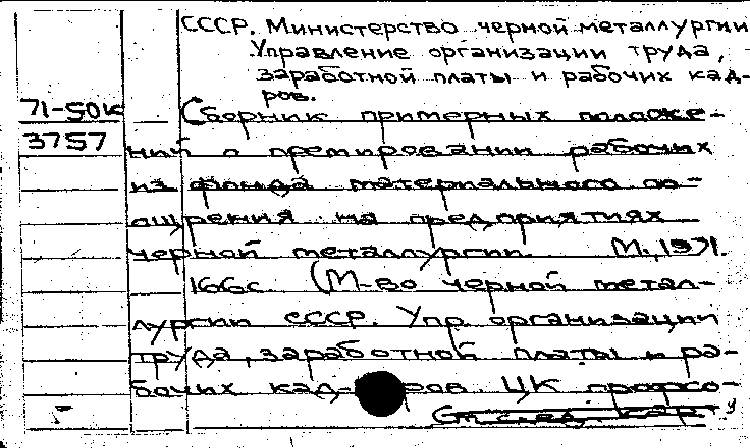 СССР. Министерство черной металлургии
Управление организации труда,
заработной платы и рабочих кад-
ров.
71-50к
3757
Сборник примерных положе-
ний о премировании рабочих
из фонда материального по-
ощрения на предприятиях
черной металлургии. М., 1971.
166с. (М-во черной метал-
лургии СССР. Упр. организации
труда, заработной платы и ра-
бочих кад-ров. ЦК профсо-
См. след. карт